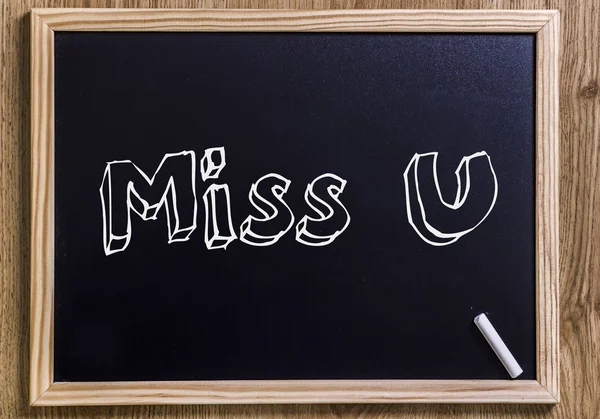 Miss U